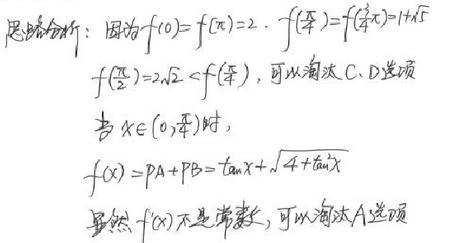 思路分析：因为f(0)=f(π)=2．f(π/4)=f(3/4π)=1+√5
f(π/2)=2√2<f(π/4)，可以淘汰C、D选项
当x∈(0,π/4)时，
f(x)=PA+PB=tanx+√(4+tan²x)
显然f'(x)不是常数，可以淘汰A选项